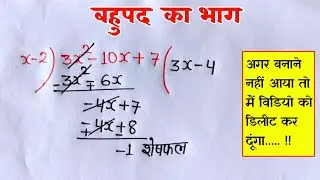 बहुपद का भाग
x-2) 3x² - 10x + 7 ( 3x - 4
3x² ∓ 6x
-4x + 7
∓ 4x ± 8
-1 शेषफल
अगर बनाने
नहीं आया तो
में विडियो को
डिलीट कर
दूंगा..... !!